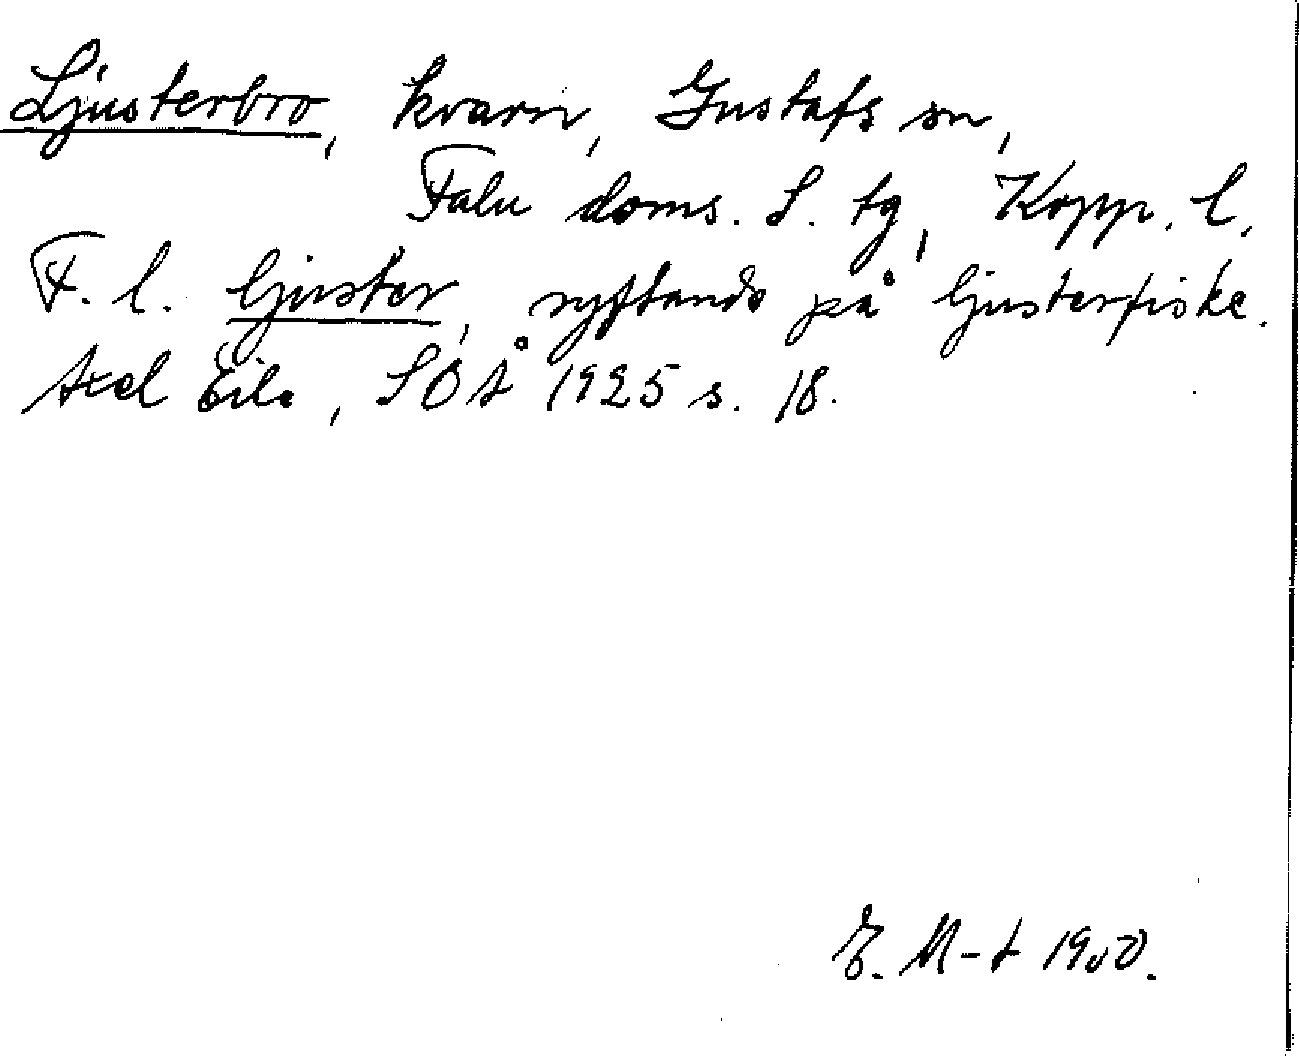 Ljusterbro, kvarn, Gustafs sn,
Falu doms. S. tg, Kopp. l.
F. l. ljuster, syftande på ljusterfiske.
Axel SOÅ 1925 s. 18.
E. M-t